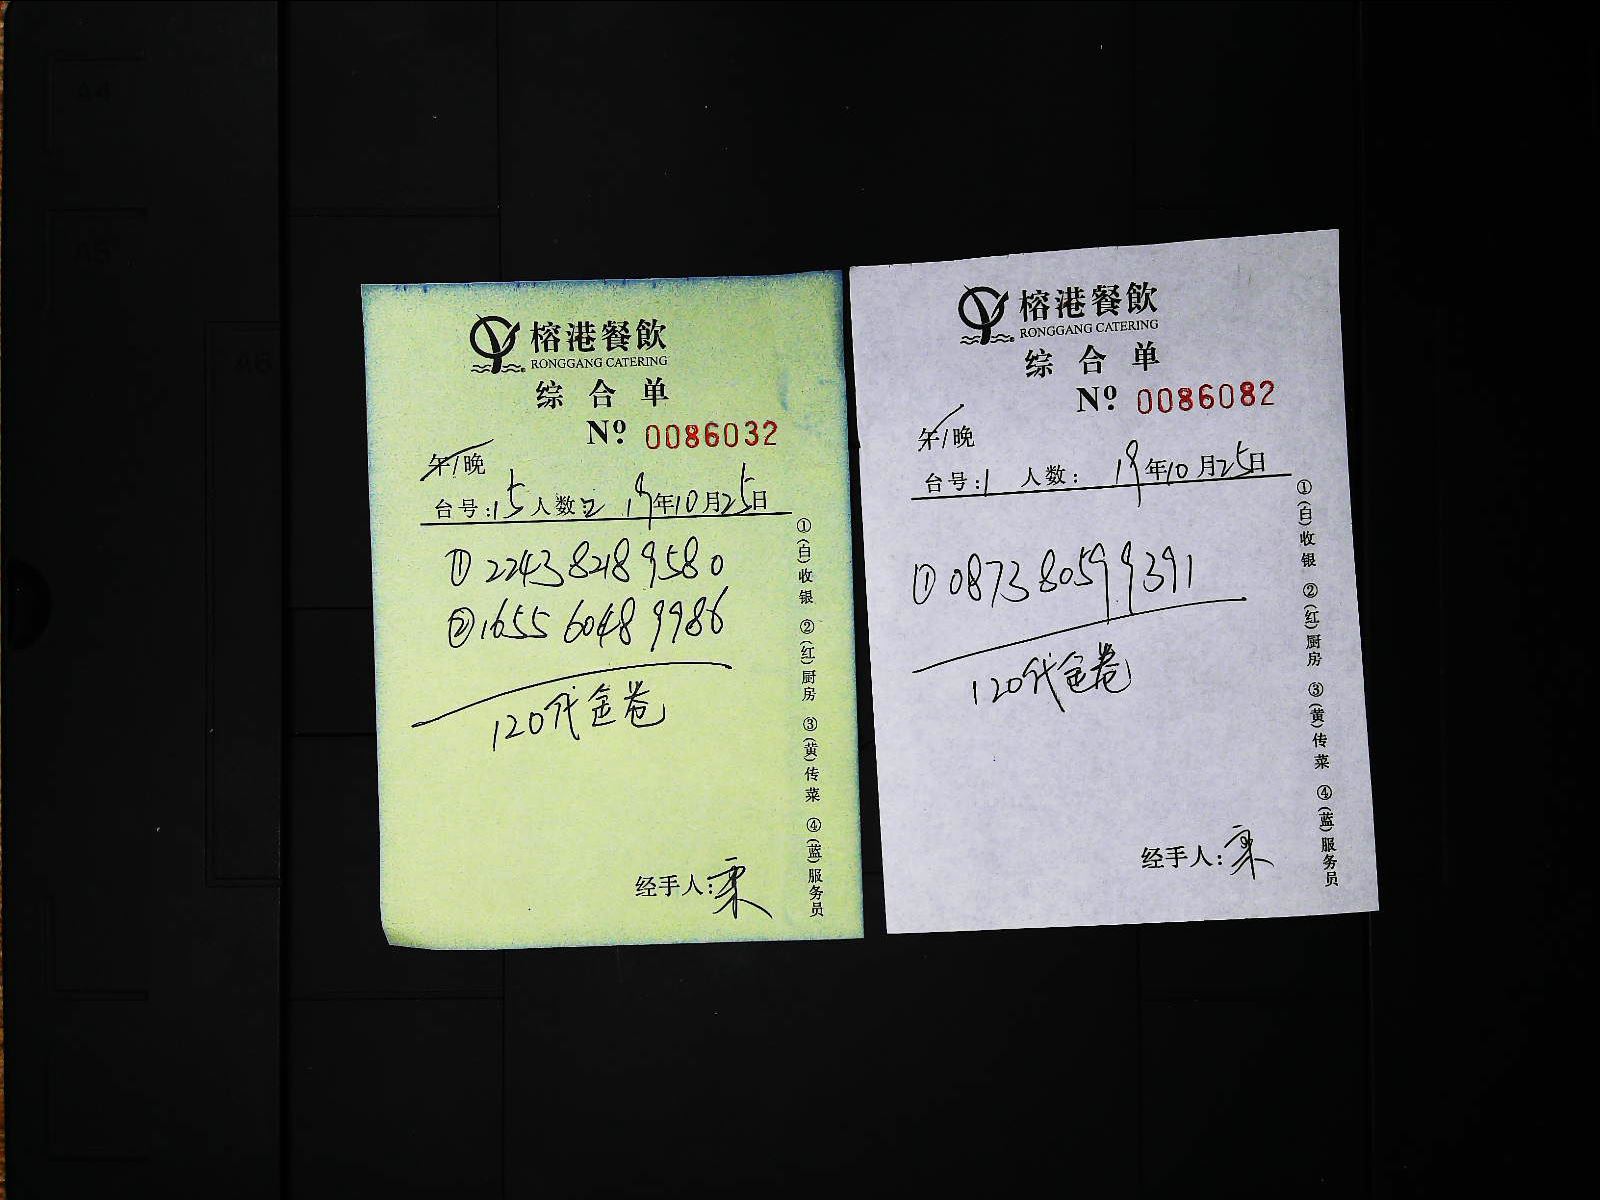 榕港餐飲
RONGGANG CATERING
综合单
Nº 0086032
午/晚
台号:15 人数:2 19年10月25日
① 2243 8289580
② 1655 6048 9986
120代金卷
经手人:
①(白)收银 ②(红)厨房 ③(黄)传菜 ④(蓝)服务员
榕港餐飲
RONGGANG CATERING
综合单
Nº 0086082
午/晚
台号:1 人数: 19年10月25日
① 0873 8059 9391
120代金卷
经手人:
①(白)收银 ②(红)厨房 ③(黄)传菜 ④(蓝)服务员
A4
A5
A6